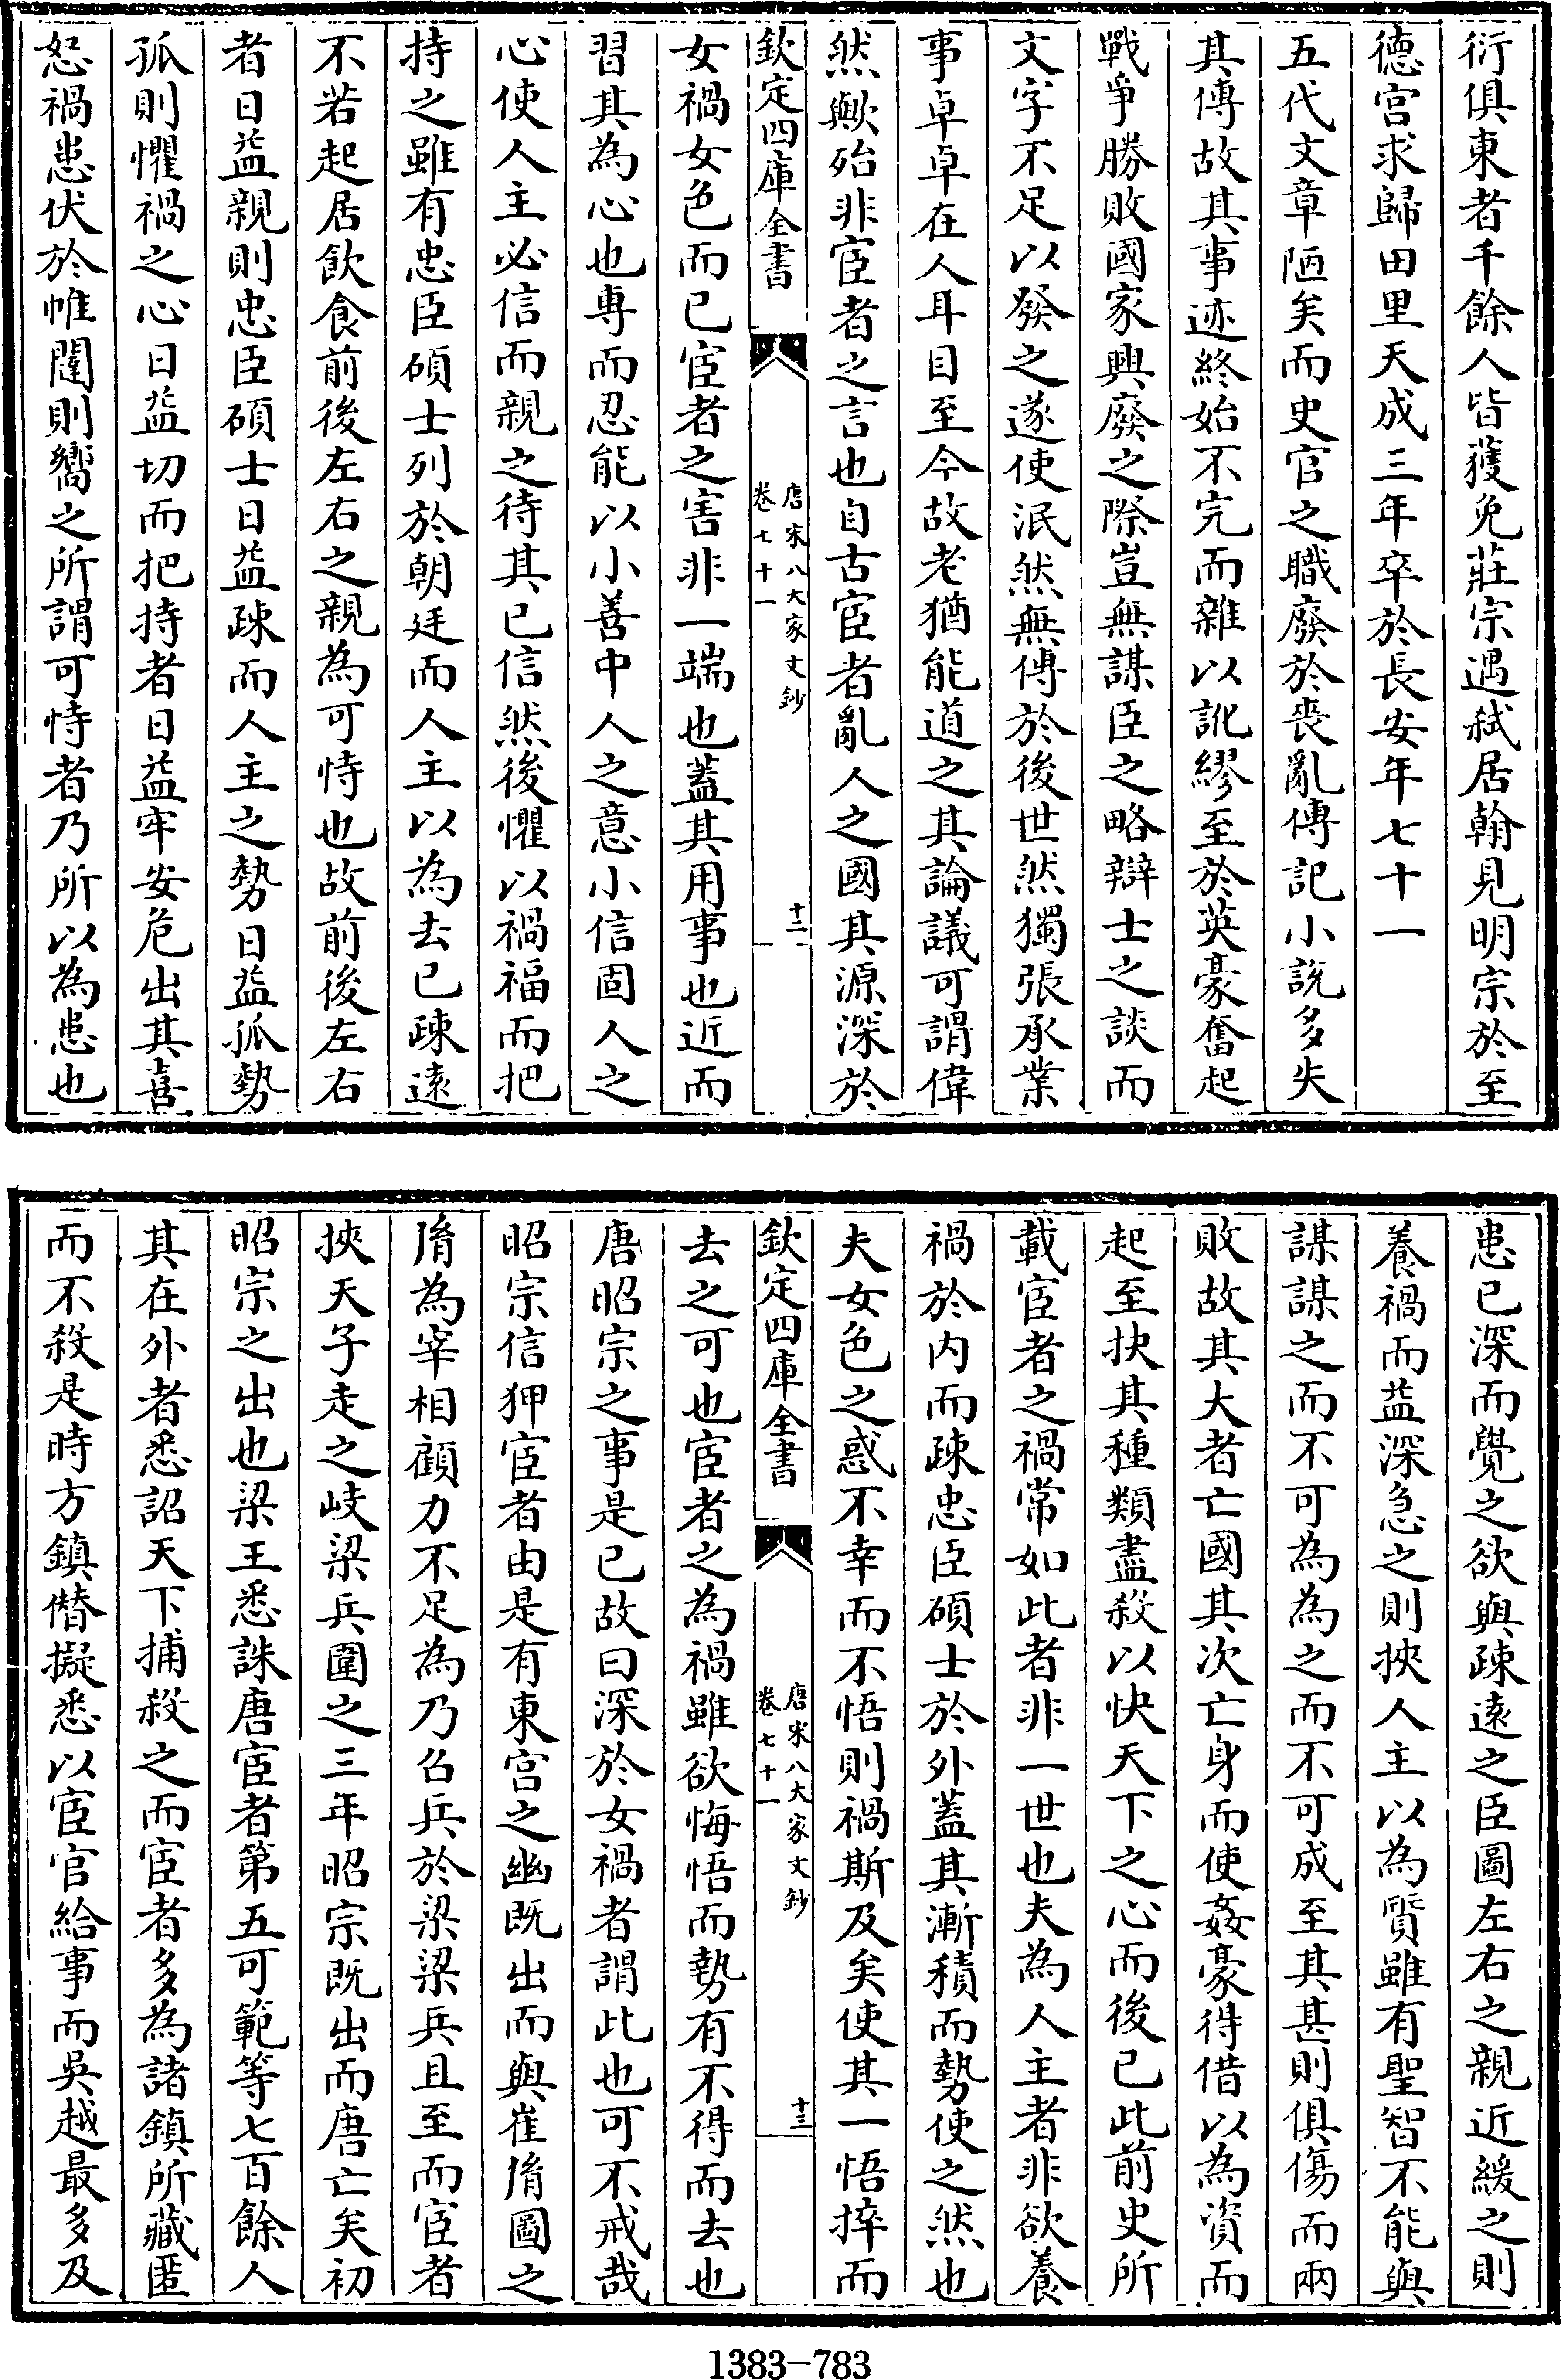 衍俱東者千餘人皆獲免莊宗遇弑居翰見明宗於至
德宫求歸田里天成三年卒於長安年七十一
五代文章陋矣而史官之職廢於喪亂傳記小説多失
其傳故其事迹終始不完而雜以訛繆至於英豪奮起
戰爭勝敗國家興廢之際豈無謀臣之略辯士之談而
文字不足以發之遂使泯然無傳於後世然獨張承業
事卓卓在人耳目至今故老猶能道之其論議可謂偉
然歟殆非宦者之言也自古宦者亂人之國其源深於
欽定四庫全書
唐宋八大家文鈔
卷七十一
十二
女禍女色而已宦者之害非一端也蓋其用事也近而
習其為心也專而忍能以小善中人之意小信固人之
心使人主必信而親之待其已信然後懼以禍福而把
持之雖有忠臣碩士列於朝廷而人主以為去已疎遠
不若起居飲食前後左右之親為可恃也故前後左右
者日益親則忠臣碩士日益疎而人主之勢日益孤勢
孤則懼禍之心日益切而把持者日益牢安危出其喜
怒禍患伏於帷闥則嚮之所謂可恃者乃所以為患也
患已深而覺之欲與疎遠之臣圖左右之親近緩之則
養禍而益深急之則挾人主以為質雖有聖智不能與
謀謀之而不可為為之而不可成至其甚則俱傷而兩
敗故其大者亡國其次亡身而使姦豪得借以為資而
起至抉其種類盡殺以快天下之心而後已此前史所
載宦者之禍常如此者非一世也夫為人主者非欲養
禍於内而疎忠臣碩士於外蓋其漸積而勢使之然也
夫女色之惑不幸而不悟則禍斯及矣使其一悟捽而
欽定四庫全書
唐宋八大家文鈔
卷七十一
十三
去之可也宦者之為禍雖欲悔悟而勢有不得而去也
唐昭宗之事是已故曰深於女禍者謂此也可不戒哉
昭宗信狎宦者由是有東宫之幽既出而與崔𦙍圖之
𦙍為宰相顧力不足為乃召兵於梁梁兵且至而宦者
挾天子走之岐梁兵圍之三年昭宗既出而唐亡矣初
昭宗之出也梁王悉誅唐宦者第五可範等七百餘人
其在外者悉詔天下捕殺之而宦者多為諸鎮所藏匿
而不殺是時方鎮僭擬悉以宦官給事而吳越最多及
1383-783